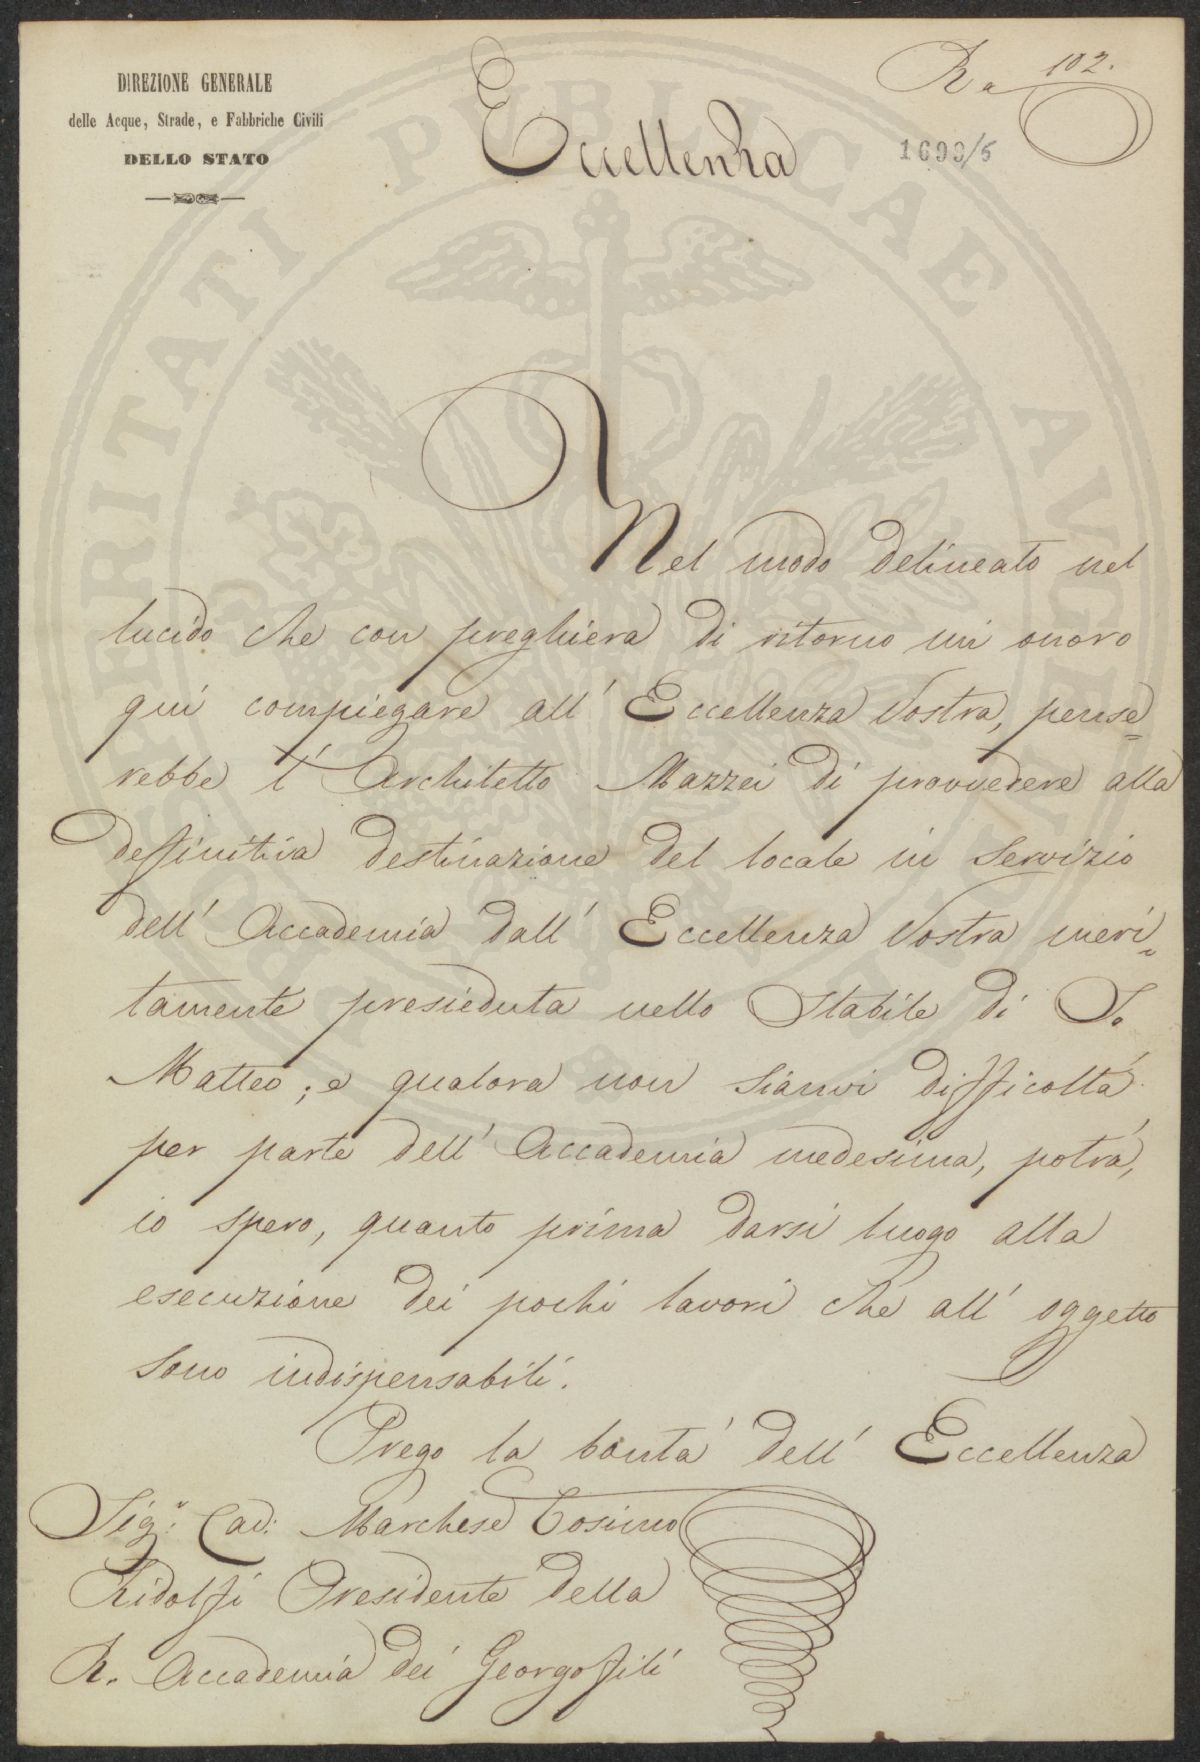 DIREZIONE GENERALE
delle Acque, Strade, e Fabbriche Civili
DELLO STATO
102.
1699/5
Eccellenza
Nel modo delineato nel
lucido che con preghiera di ritorno mi onoro
quì compiegare all' Eccellenza Vostra, pense=
rebbe l' Architetto Mazzei di provvedere alla
deffinitiva destinazione del locale in servizio
dell' Accademia dall' Eccellenza Vostra meri=
tamente presieduta nello Stabile di S.
Matteo; e qualora non sianvi difficoltà
per parte dell' Accademia medesima, potrà,
io spero, quanto prima darsi luogo alla
esecuzione dei pochi lavori che all' oggetto
sono indispensabili.
Prego la bontà dell' Eccellenza
Sig.r Cav: Marchese Cosimo
Ridolfi Presidente della
R. Accademia dei Georgofili
PROSPERITATI PUBLICAE AUGENDAE